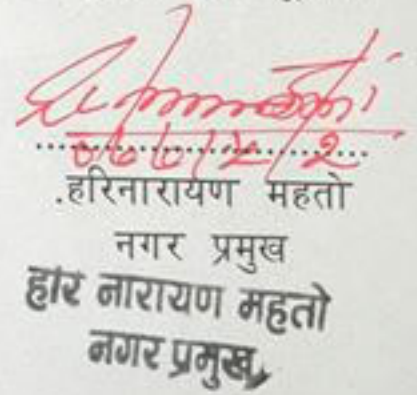 .हरिनारायण महतो
नगर प्रमुख
हरि नारायण महतो
नगर प्रमुख